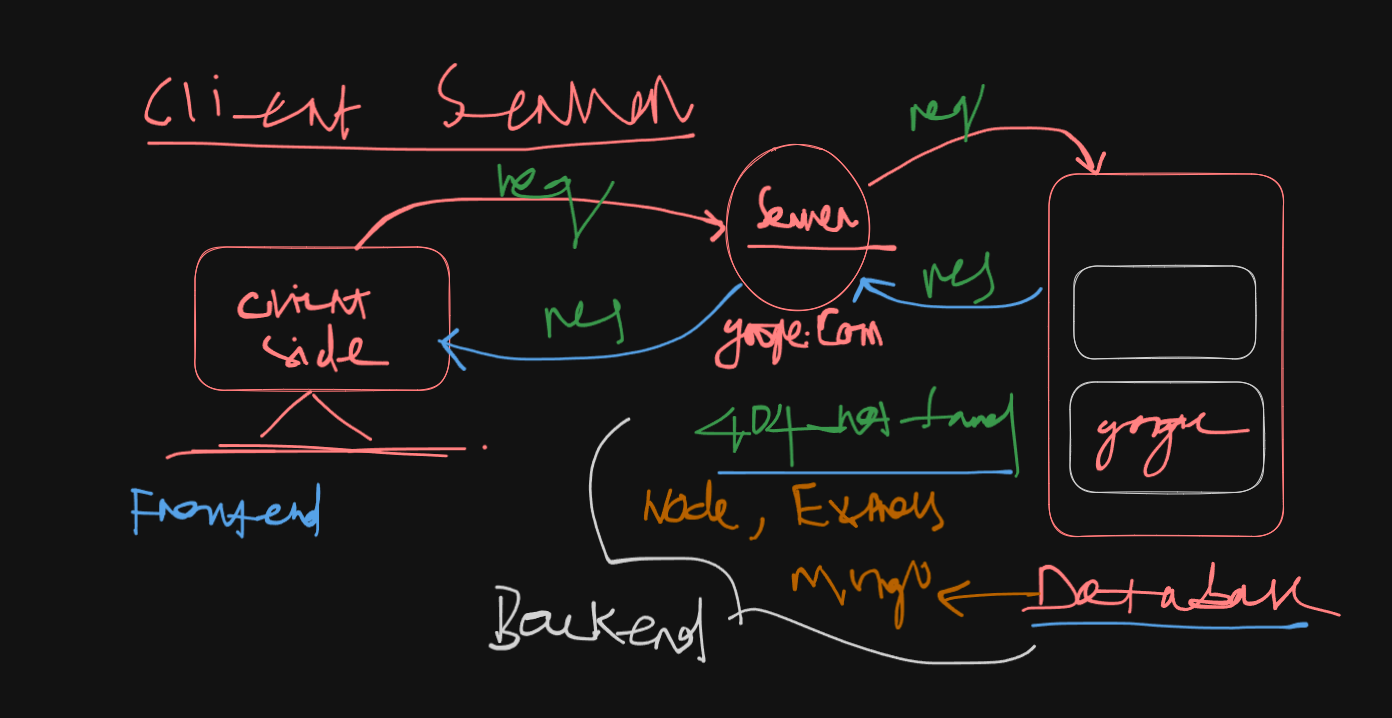 Client Server
req
req
Server
res
Client
side
res
404 not found
Frontend
Node, Express
Mongo
Database
Backend